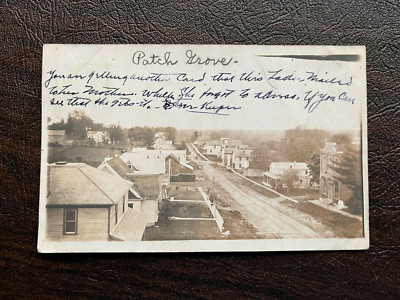 Patch Grove
You are getting another Card, that this Ladie Mailed
to her Mother. While She forgot to adress. if you Can
see that she gets it.
Keeper